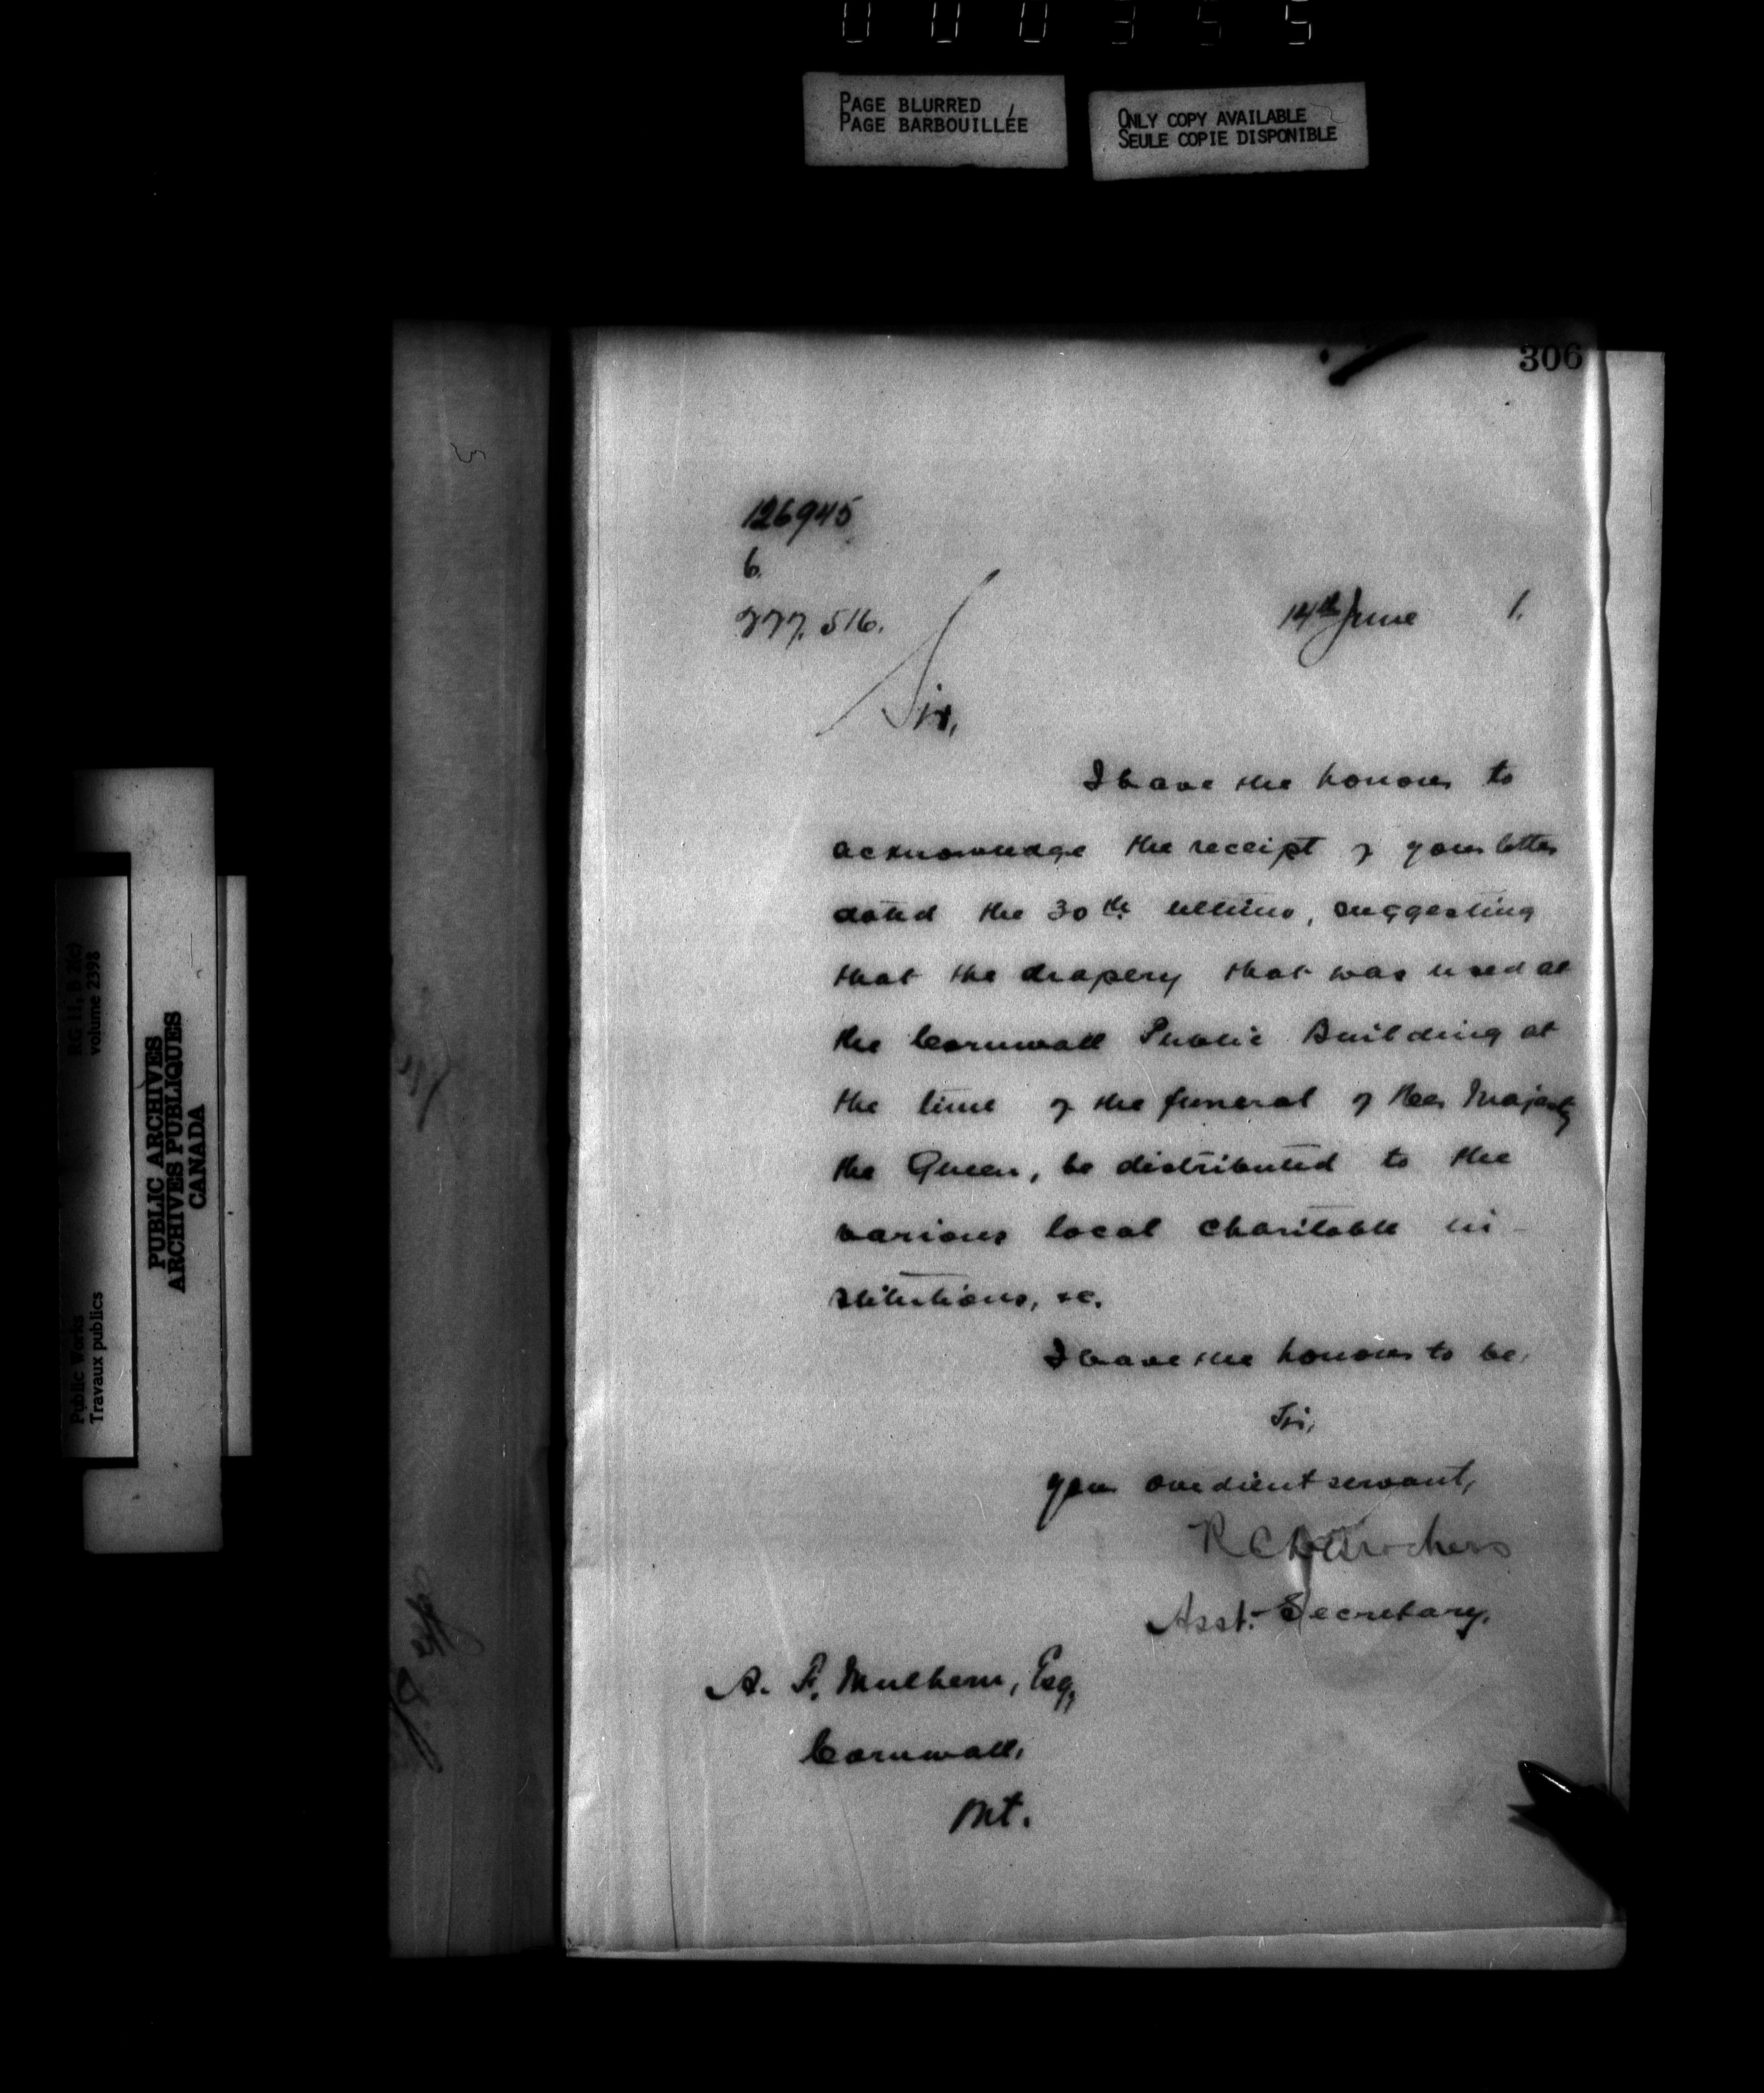 000355
PAGE BLURRED
PAGE BARBOUILLÉE
ONLY COPY AVAILABLE
SEULE COPIE DISPONIBLE
306
126945
6.
277.516.
14th June 1.
Sir,
I have the honour to
acknowledge the receipt of your letter
dated the 30th ultimo, suggesting
that the drapery that was used at
the Cornwall Public Building at
the time of the funeral of Her Majesty
the Queen, be distributed to the
various local charitable in-
stitutions, &c.
I have the honour to be,
Sir,
your obedient servant,
R C Desrochers
Asst. Secretary.
A. F. Mulhern, Esq,
Cornwall,
Ont.
RG 11, B 2(c)
volume 2398
Public Works
Travaux publics
PUBLIC ARCHIVES
ARCHIVES PUBLIQUES
CANADA